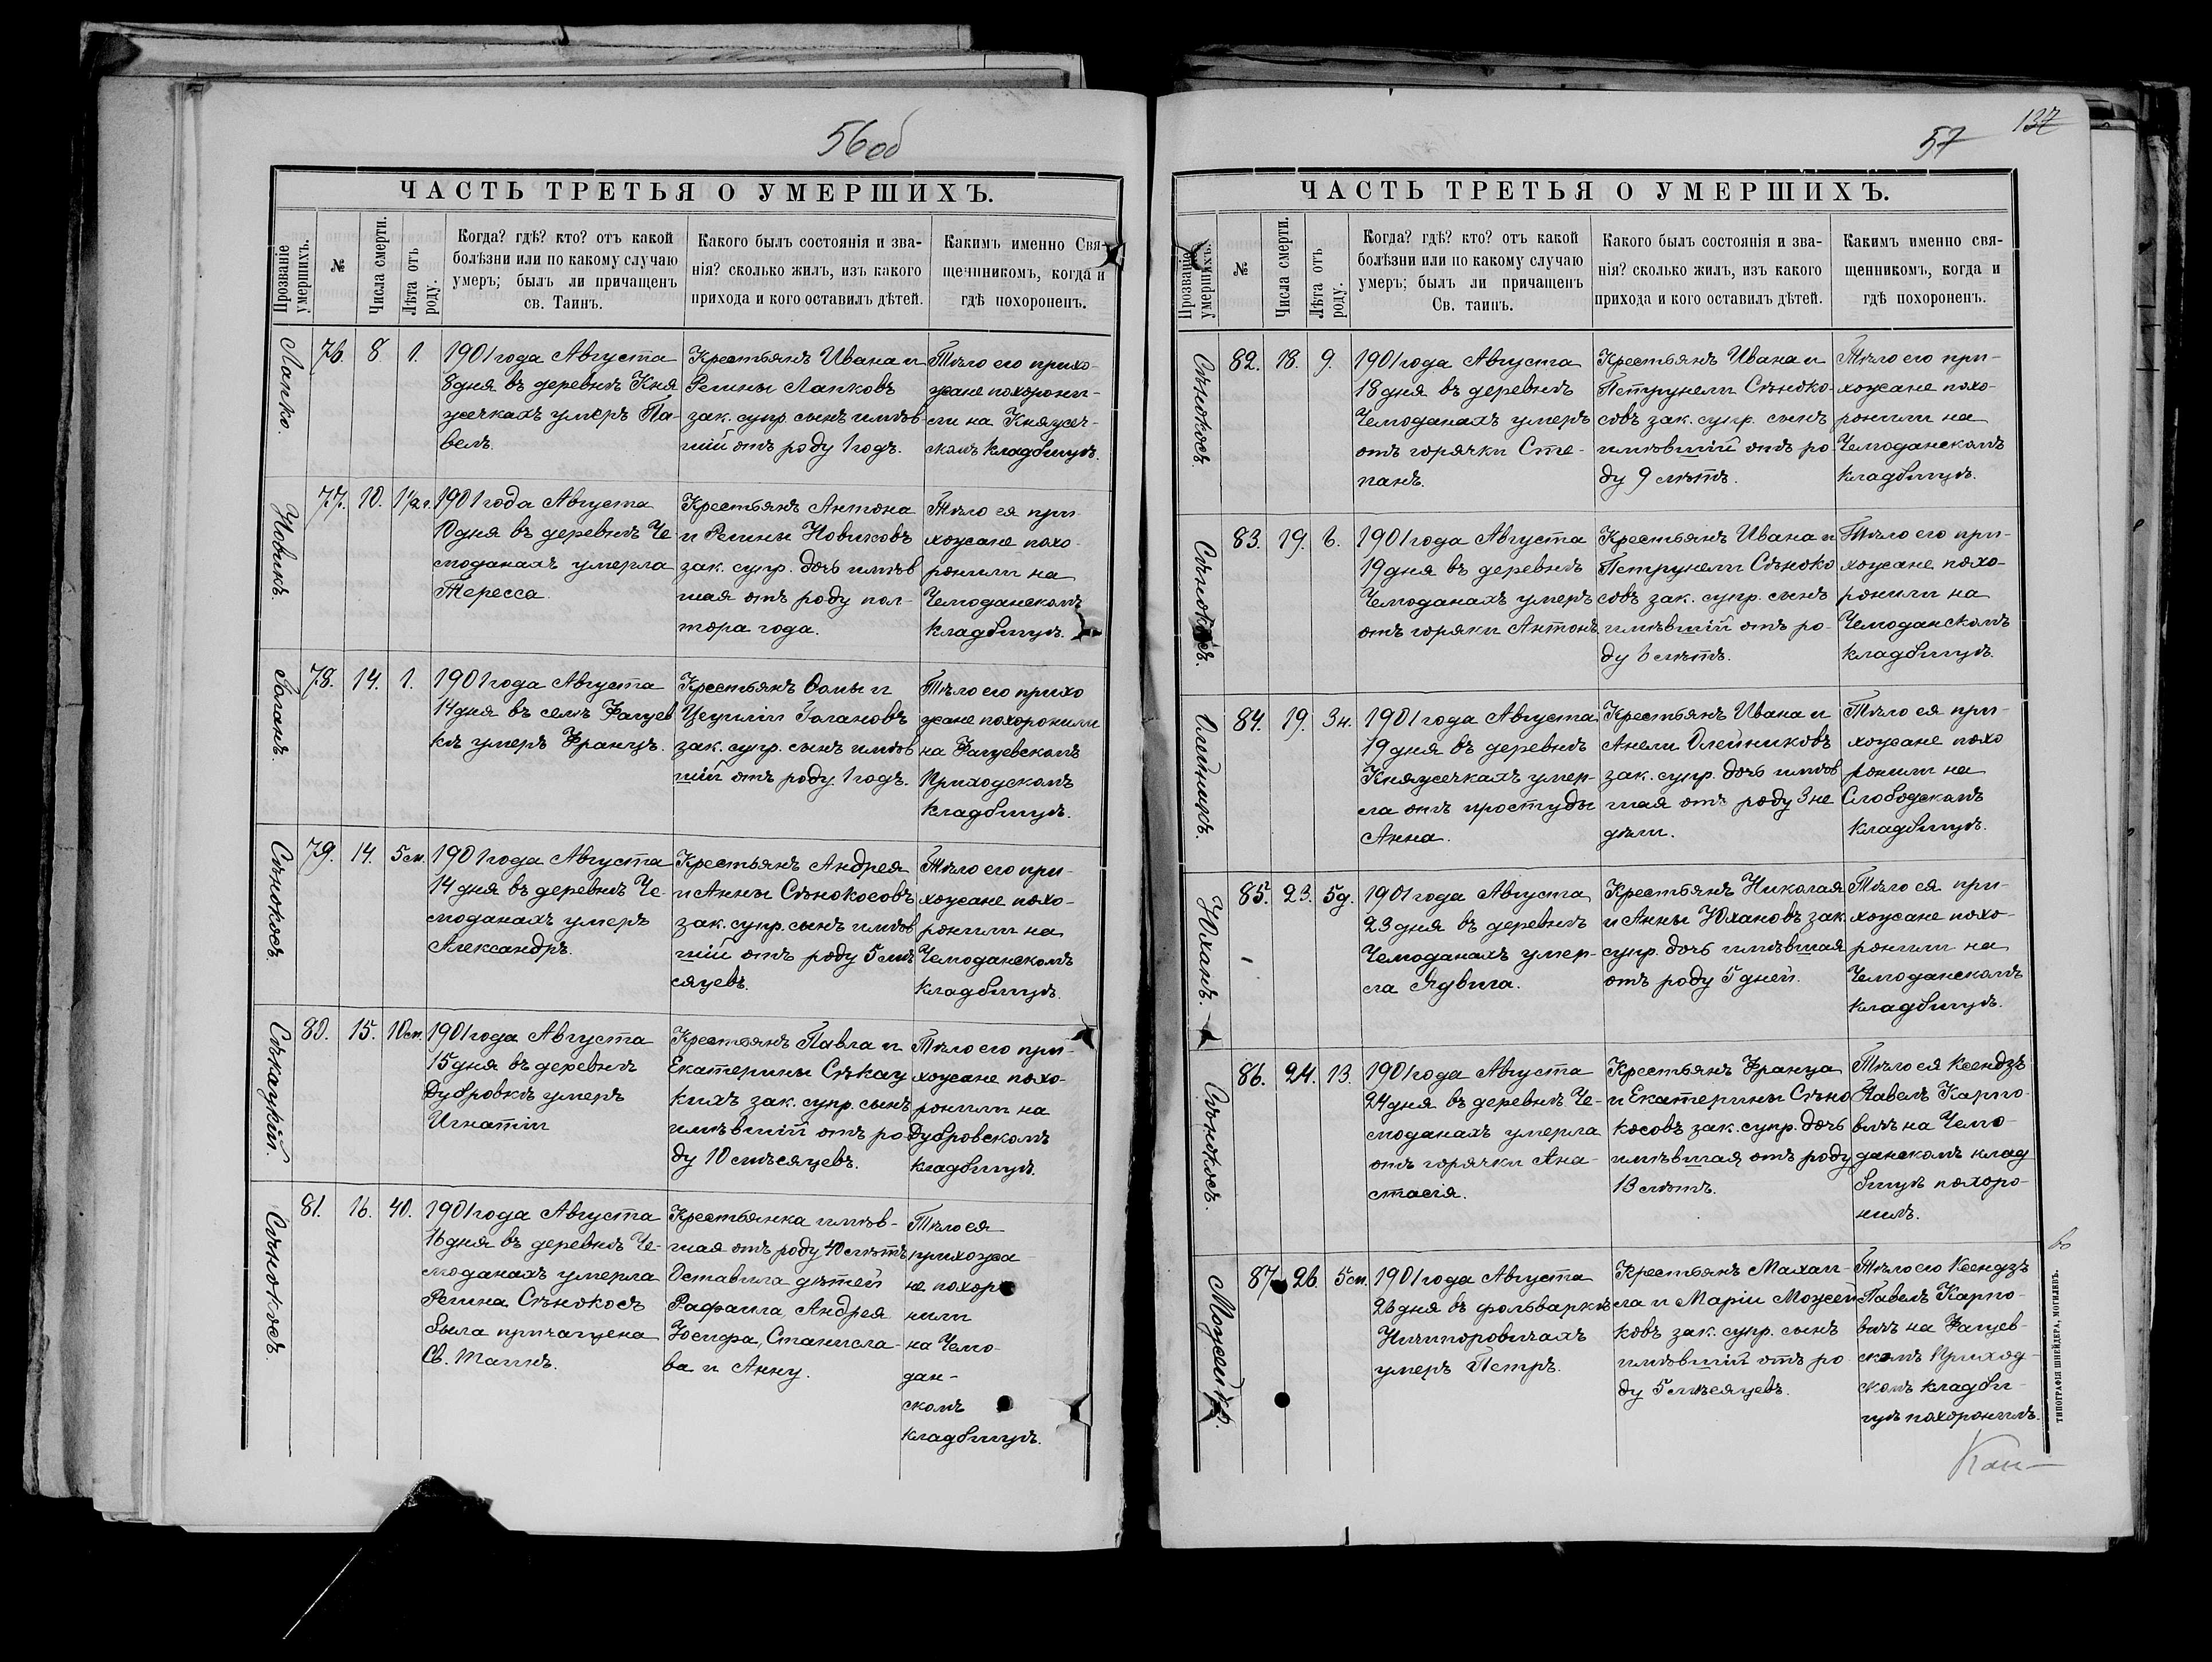 56об
ЧАСТЬ ТРЕТЬЯ О УМЕРШИХЪ.
Прозваніе умершихъ.
№
Числа смерти.
Лѣта отъ роду.
Когда? гдѣ? кто? отъ какой
болѣзни или по какому случаю
умеръ; былъ ли причащенъ
св. Таинъ.
Какого былъ состоянія и зва-
нія? сколько жилъ, изъ какого
прихода и кого оставилъ дѣтей.
Какимъ именно Свя-
щенникомъ, когда и
гдѣ похороненъ.
Лапко.
76. 8 1.
1901 года Августа
8 дня въ деревнѣ Кня
жечкахъ умеръ Па-
велъ.
Крестьянъ Ивана и
Регины Лапковъ
зак. супр. сынъ имѣв
шій отъ роду 1 годъ.
Тѣло его прихо-
жане похорони-
ли на Княжеч-
скомъ кладбищѣ.
Новикъ.
77. 10. 1 1/2 г.
1901 года Августа
10 дня въ деревнѣ Че-
моданахъ умерла
Тересса.
Крестьянъ Антона
и Регины Новиковъ
зак. супр. дочь имѣв
шая отъ роду пол-
тора года.
Тѣло ея при-
хожане похо-
ронили на
Чемоданскомъ
кладбищѣ.
Голанъ.
78. 14. 1.
1901 года Августа
14 дня въ селѣ Фащев
кѣ умеръ Францъ.
Крестьянъ Ѳомы и
Цециліи Голановъ
зак. супр. сынъ имѣв
шій отъ роду 1 годъ.
Тѣло его прихо
жане похоронили
на Фащевскомъ
Приходскомъ
кладбищѣ.
Сѣнокосъ.
79. 14. 5 м.
1901 года Августа
14 дня въ деревнѣ Че-
моданахъ умеръ
Александръ.
Крестьянъ Андрея
и Анны Сѣнокосовъ
зак. супр. сынъ имѣв
шій отъ роду 5 мѣ
сяцевъ.
Тѣло его при-
хожане похо-
ронили на
Чемоданскомъ
кладбищѣ.
Сѣкацкій.
80. 15. 10 м.
1901 года Августа
15 дня въ деревнѣ
Дубровкѣ умеръ
Игнатій
Крестьянъ Павла и
Екатерины Сѣкац
кихъ зак. супр. сынъ
имѣвшій отъ ро-
ду 10 мѣсяцевъ.
Тѣло его при-
хожане похо-
ронили на
Дубровскомъ
кладбищѣ.
Сѣнокосъ.
81. 16. 40.
1901 года Августа
16 дня въ деревнѣ Че-
моданахъ умерла
Регина Сѣнокосъ
была причащена
Св. Таинъ.
Крестьянка имѣв-
шая отъ роду 40 лѣтъ
Оставила дѣтей
Рафаила, Андрея
Іосифа, Станисла-
ва и Анну.
Тѣло ея
прихожа-
не похоро
нили
на Чемо-
дан-
скомъ
кладбищѣ.
137
57
ЧАСТЬ ТРЕТЬЯ О УМЕРШИХЪ.
Прозваніе умершихъ.
№
Числа смерти.
Лѣта отъ роду.
Когда? гдѣ? кто? отъ какой
болѣзни или по какому случаю
умеръ; былъ ли причащенъ
Св. таинъ.
Какого былъ состоянія и зва-
нія? сколько жилъ, изъ какого
прихода и кого оставилъ дѣтей.
Какимъ именно свя-
щенникомъ, когда и
гдѣ похороненъ.
Сѣнокосъ.
82. 18. 9.
1901 года Августа
18 дня въ деревнѣ
Чемоданахъ умеръ
отъ горячки Сте-
панъ.
Крестьянъ Ивана и
Петрунели Сѣноко-
совъ зак. супр. сынъ
имѣвшій отъ ро-
ду 9 лѣтъ.
Тѣло его при-
хожане похо-
ронили на
Чемоданскомъ
кладбищѣ.
Сѣнокосъ.
83. 19. 6.
1901 года Августа
19 дня въ деревнѣ
Чемоданахъ умеръ
отъ горяки Антонъ
Крестьянъ Ивана и
Петрунели Сѣноко
совъ зак. супр. сынъ
имѣвшій отъ ро-
ду 6 лѣтъ.
Тѣло его при-
хожане похо-
ронили на
Чемоданскомъ
кладбищѣ.
Олейникъ.
84. 19. 3 н.
1901 года Августа
19 дня въ деревнѣ
Княжечкахъ умер-
ла отъ простуды
Анна.
Крестьянъ Ивана и
Анели Олейниковъ
зак. супр. дочь имѣв
шая отъ роду 3 не
дѣли.
Тѣло ея при-
хожане похо
ронили на
Слободскомъ
кладбищѣ.
Юханъ.
85. 23. 5 д.
1901 года Августа
23 дня въ деревнѣ
Чемоданахъ умер-
ла Ядвига.
Крестьянъ Николая
и Анны Юхановъ зак.
супр. дочь имѣвшая
отъ роду 5 дней.
Тѣло ея при-
хожане похо-
ронили на
Чемоданскомъ
кладбищѣ.
Сѣнокосъ.
86. 24. 13.
1901 года Августа
24 дня въ деревнѣ Че-
моданахъ умерла
отъ горячки Ана-
стасія.
Крестьянъ Франца
и Екатерины Сѣно
косовъ зак. супр. дочь
имѣвшая отъ роду
13 лѣтъ.
Тѣло ея Ксендзъ
Павелъ Карпо-
вичъ на Чемо-
данскомъ клад
бищѣ похоро-
нилъ.
Можейко.
87. 26. 5 м.
1901 года Августа
26 дня въ фольваркѣ
Ничипоровичахъ
умеръ Петръ.
Крестьянъ Махаи-
ла и Маріи Можей
ковъ зак. супр. сынъ
имѣвшій отъ ро
ду 5 мѣсяцевъ.
Тѣло его Ксендзъ
Павелъ Карпо-
вичъ на Фащев-
скомъ Приход-
скомъ кладби-
щѣ похоронилъ.
ТИПОГРАФІЯ ШНЕЙДЕРА, МОГИЛЕВЪ.